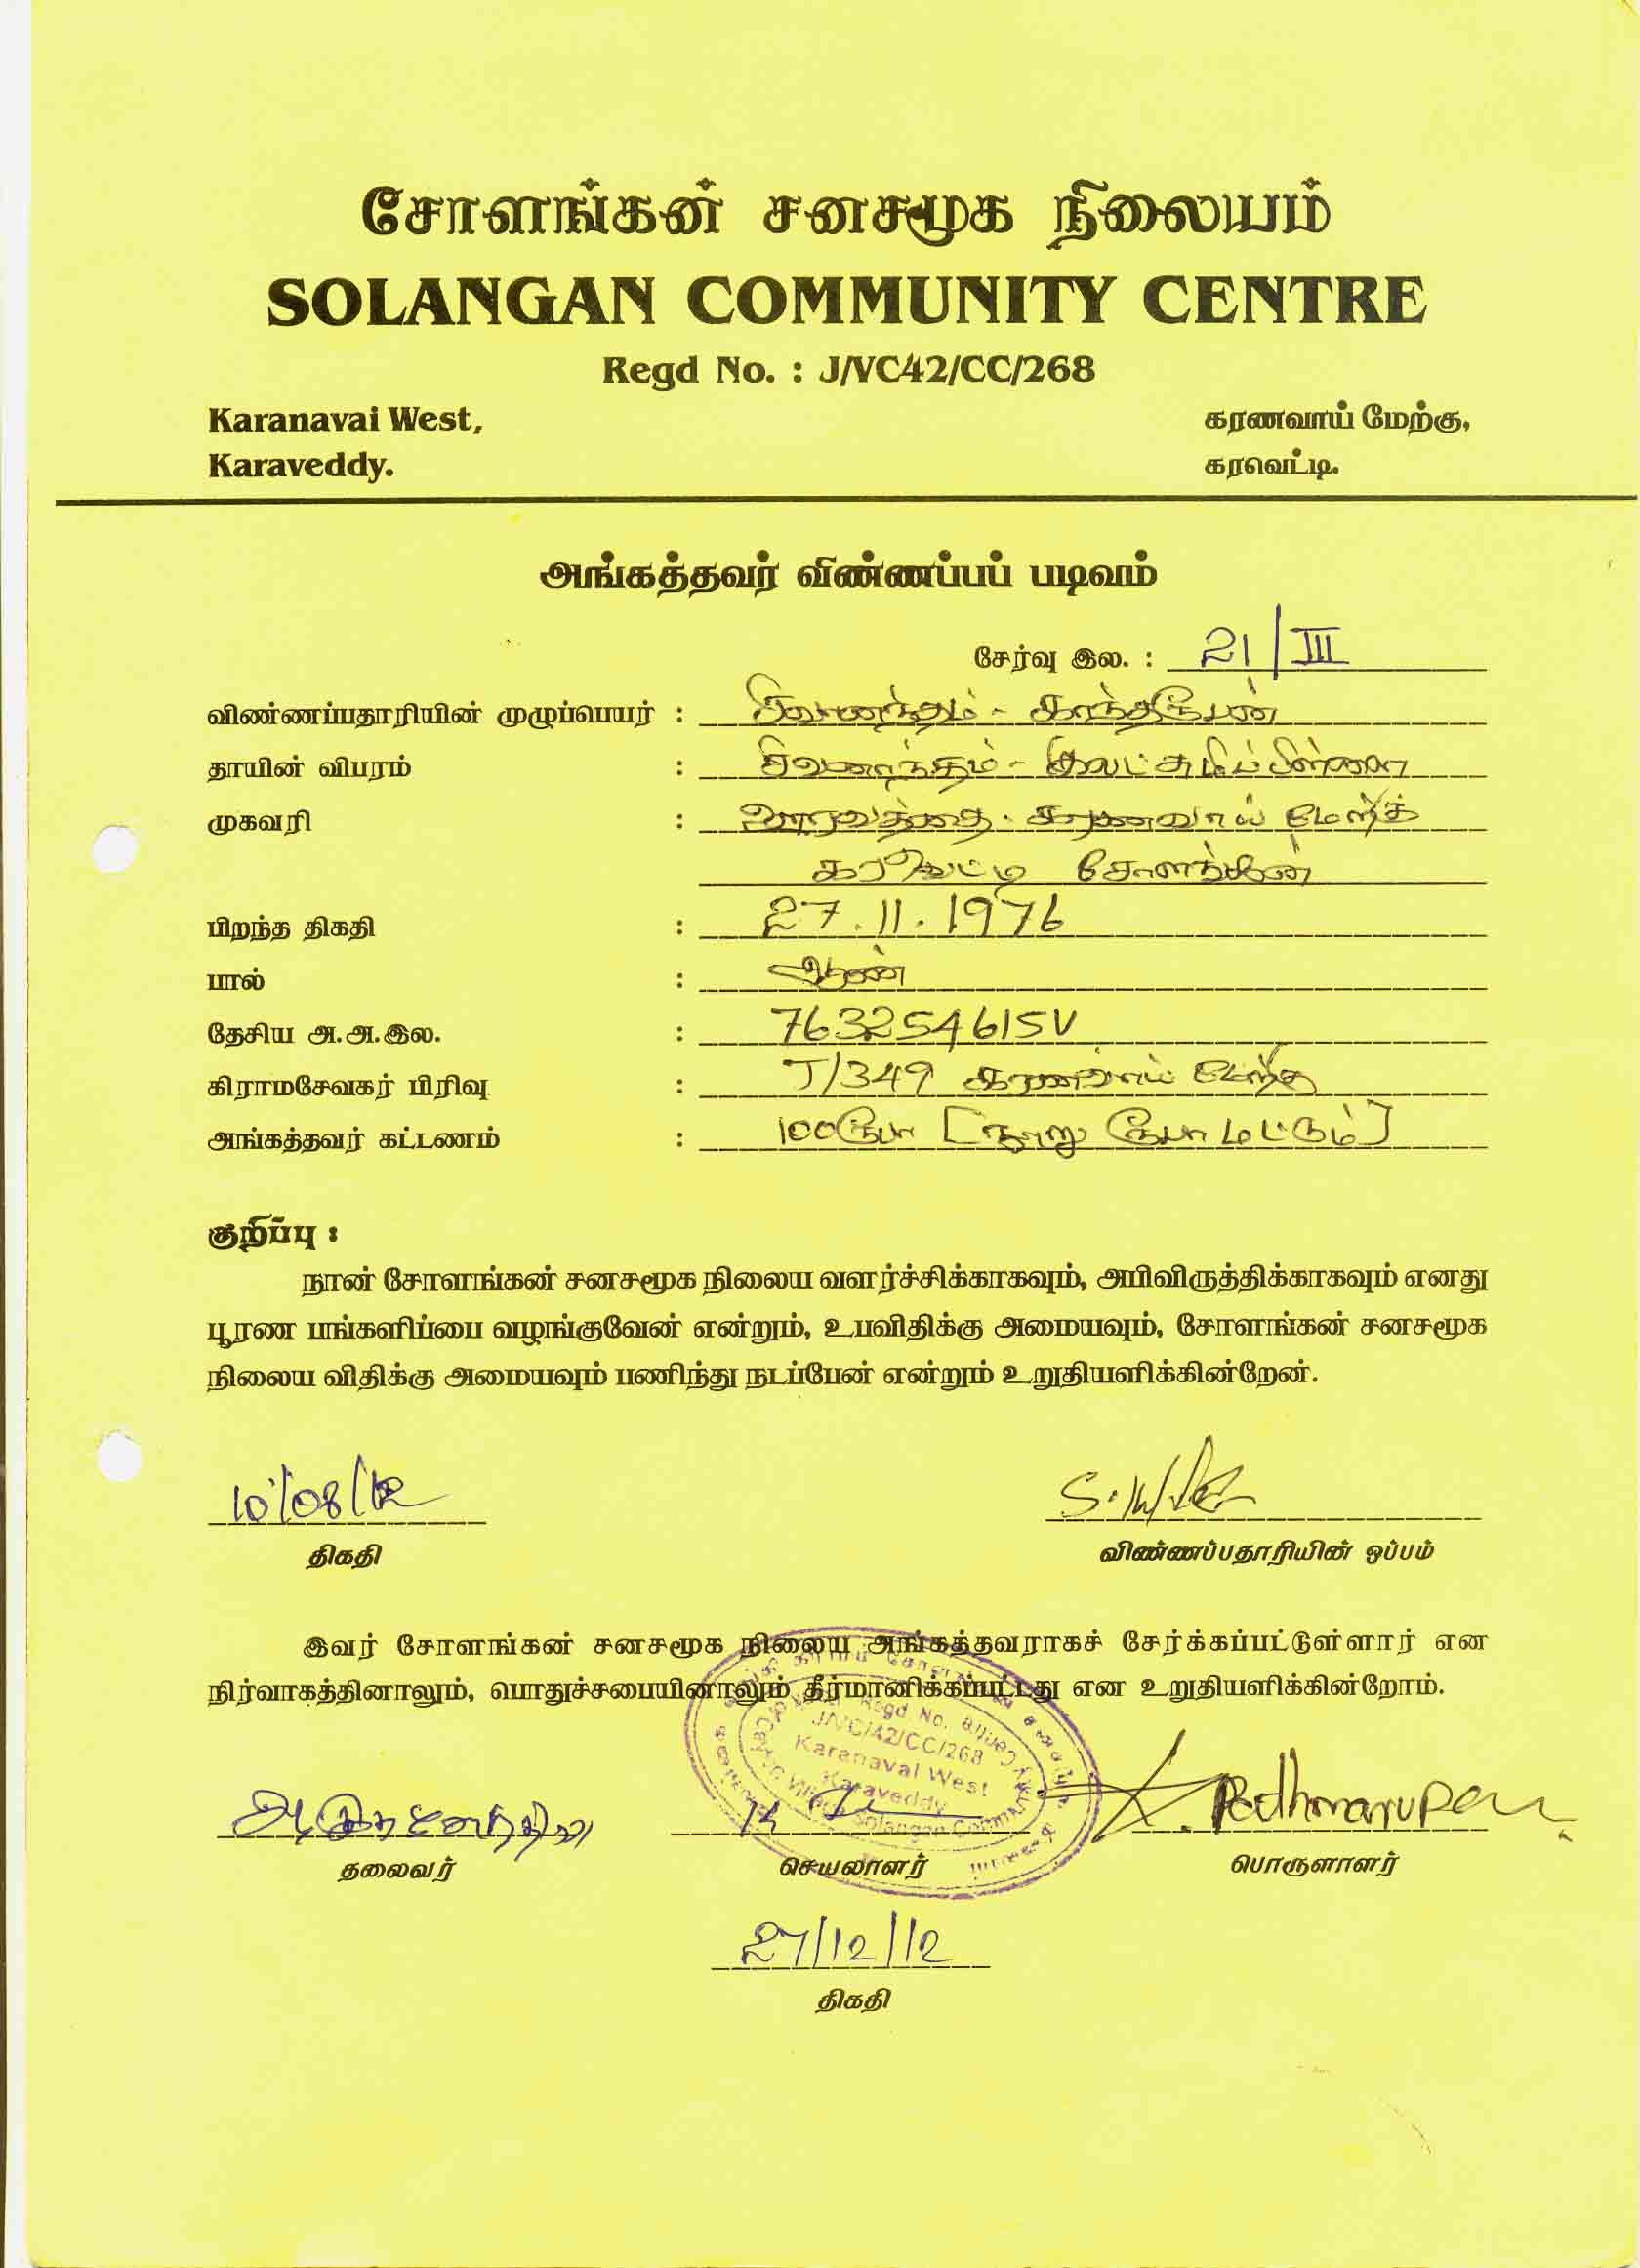 சோளங்கன் சனசமூக நிலையம்
SOLANGAN COMMUNITY CENTRE
Regd No. : J/VC42/CC/268
Karanavai West, கரணவாய் மேற்கு,
Karaveddy. கரவெட்டி.
அங்கத்தவர் விண்ணப்பப் படிவம்
சேர்வு இல. : 21/III
விண்ணப்பதாரியின் முழுப்பெயர் : சிவானந்தம் - காந்தரூபன்
தாயின் விபரம் : சிவானந்தம் - இலட்சுமிப்பிள்ளை
முகவரி : கரணவாய் மேற்கு
கரவெட்டி சோளங்கன்
பிறந்த திகதி : 27.11.1976
பால் : ஆண்
தேசிய அ.அ.இல. : 763254615V
கிராமசேவகர் பிரிவு : J/349 கரணவாய் மேற்கு
அங்கத்தவர் கட்டணம் : 100ரூபா [நூறு ரூபா மட்டும்]
குறிப்பு :
நான் சோளங்கன் சனசமூக நிலைய வளர்ச்சிக்காகவும், அபிவிருத்திக்காகவும் எனது
பூரண பங்களிப்பை வழங்குவேன் என்றும், உபவிதிக்கு அமையவும், சோளங்கன் சனசமூக
நிலைய விதிக்கு அமையவும் பணிந்து நடப்பேன் என்றும் உறுதியளிக்கின்றேன்.
10/08/12
திகதி விண்ணப்பதாரியின் ஒப்பம்
இவர் சோளங்கன் சனசமூக நிலைய அங்கத்தவராகச் சேர்க்கப்பட்டுள்ளார் என
நிர்வாகத்தினாலும், பொதுச்சபையினாலும் தீர்மானிக்கப்பட்டது என உறுதியளிக்கின்றோம்.
Regd No.
J/VC/42/CC/268
Karanavai West
Karaveddy
Solangan Community Centre
தலைவர் செயலாளர் பொருளாளர்
27/12/12
திகதி